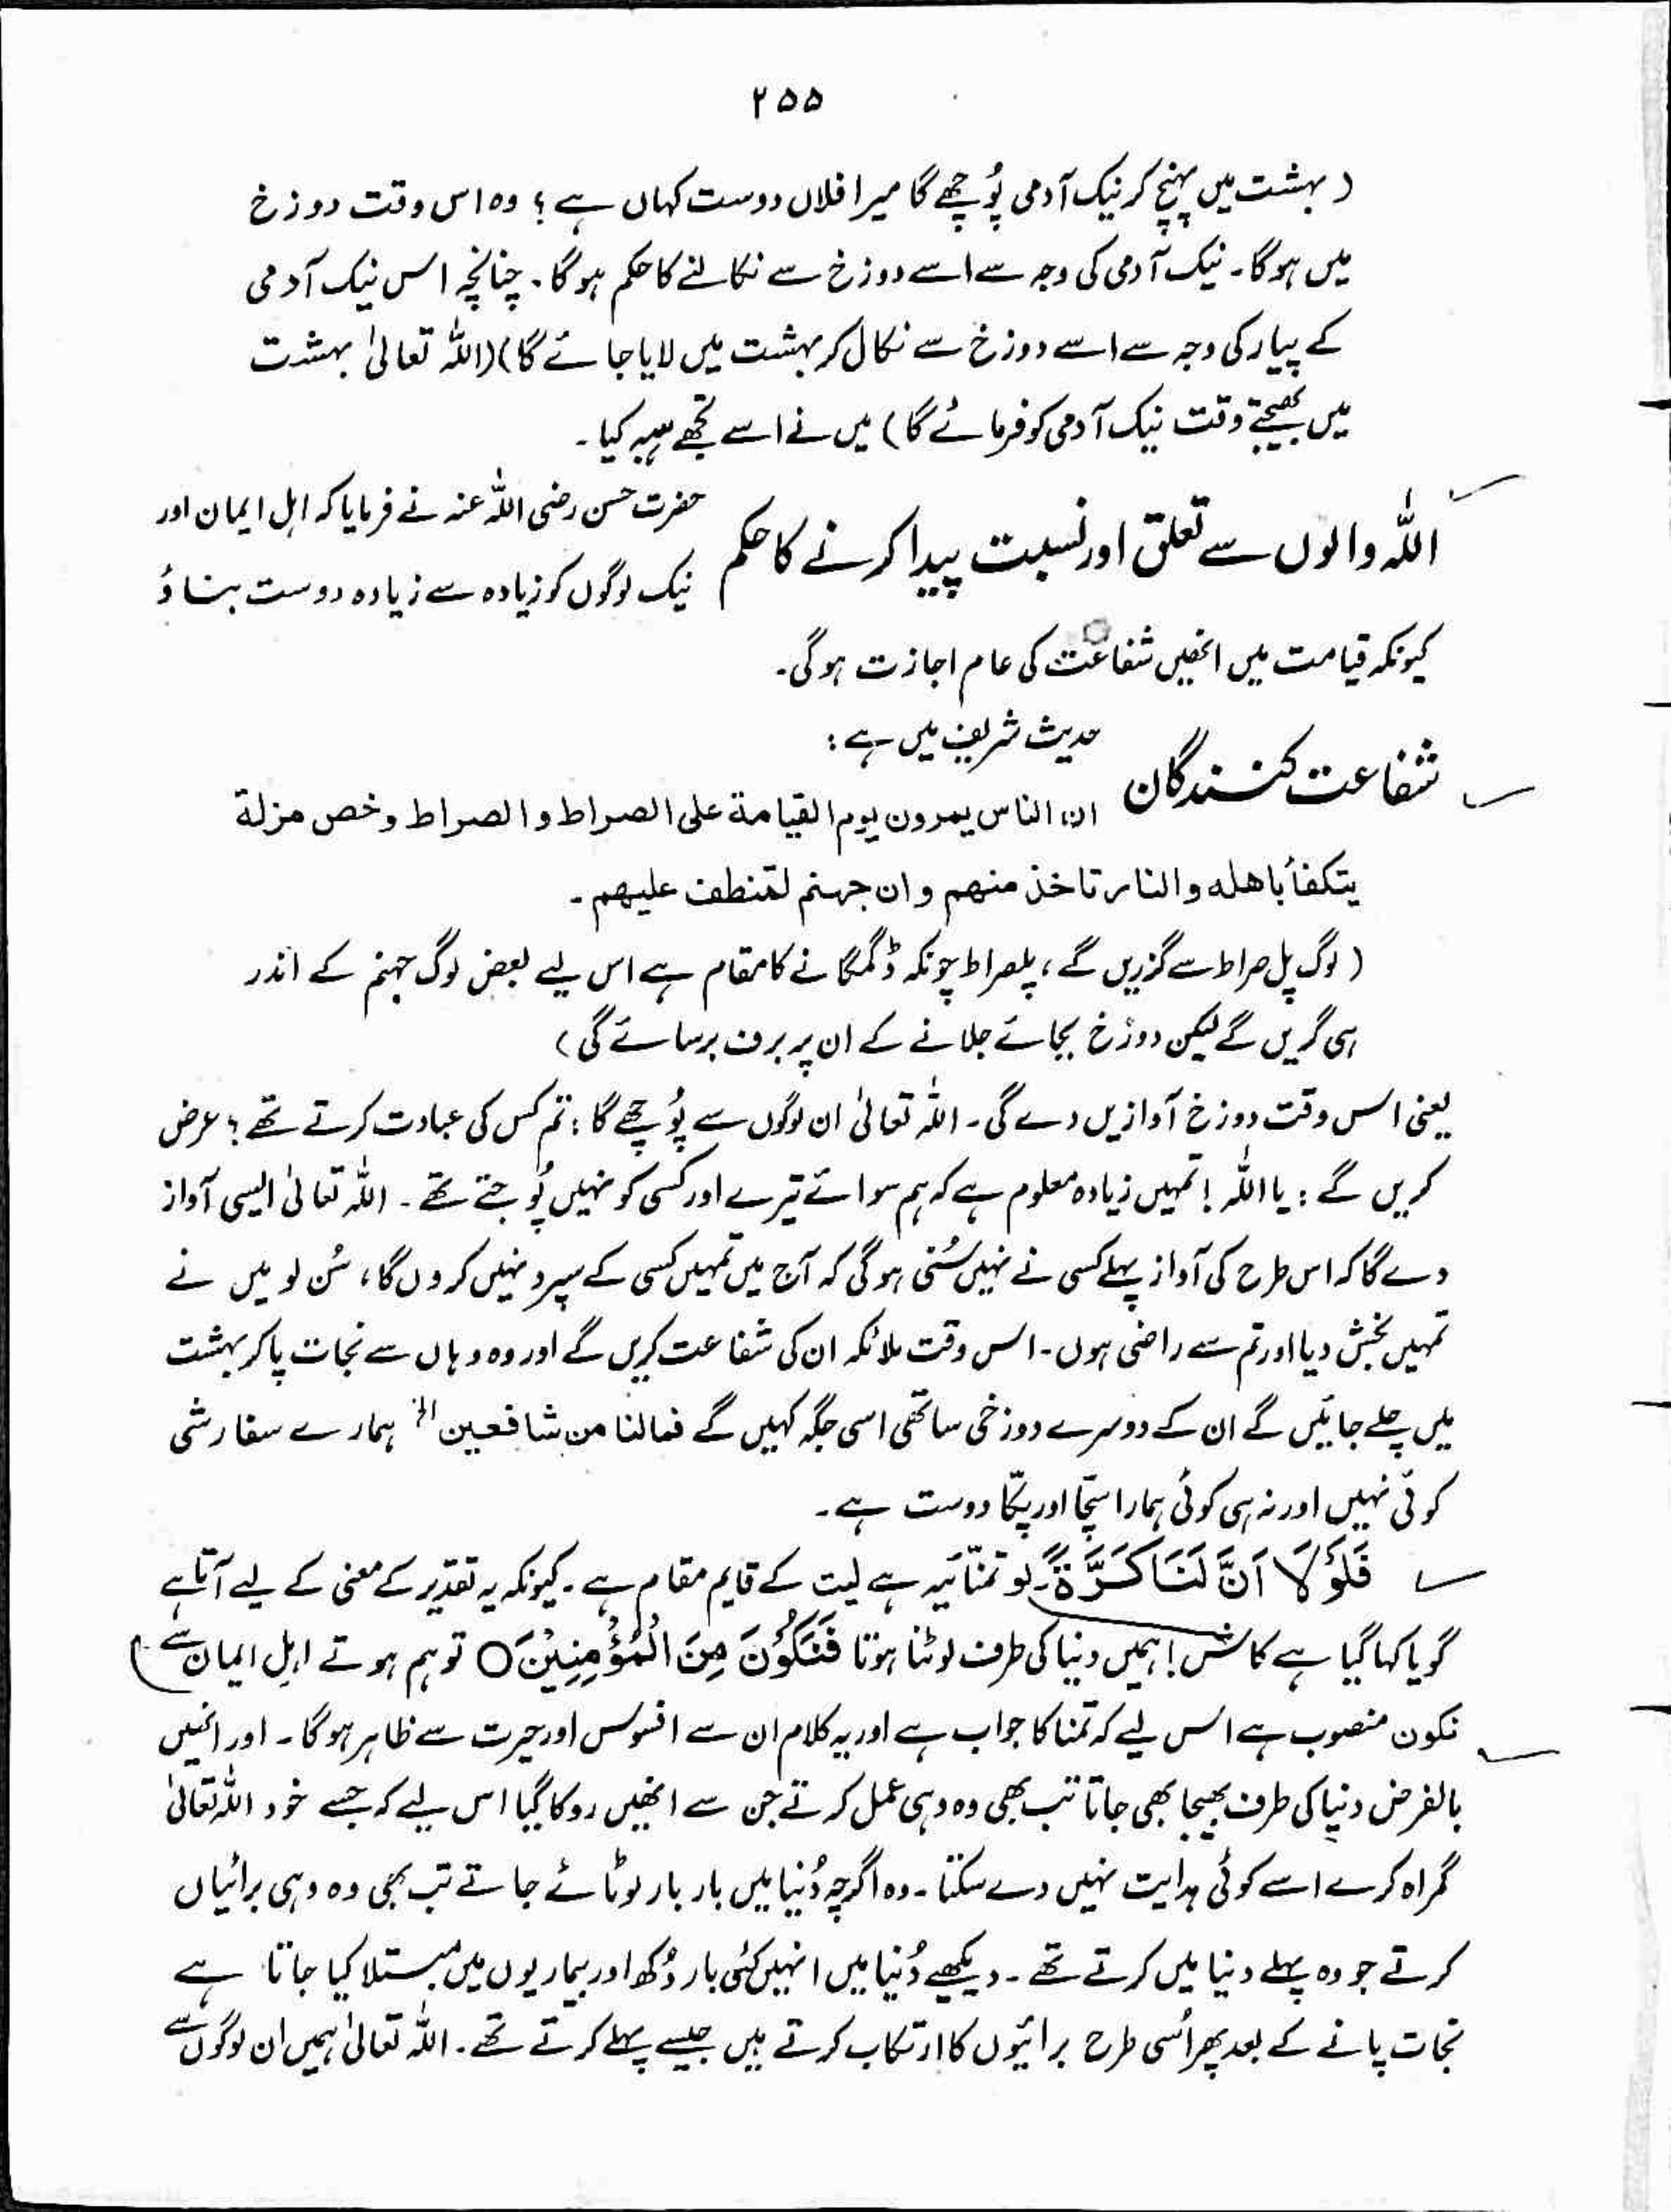 ۲۵۵
( بہشت میں پہنچ کر نیک آدمی پُوچھے گا میرا فلاں دوست کہاں ہے ؟ وہ اس وقت دوزخ
میں ہوگا۔ نیک آدمی کی وجہ سے اسے دوزخ سے نکالنے کا حکم ہوگا۔ چنانچہ اس نیک آدمی
کے پیار کی وجہ سے اسے دوزخ سے نکال کر بہشت میں لایا جائے گا)(اللہ تعالیٰ بہشت
میں بھیجتے وقت نیک آدمی کو فرمائے گا) میں نے اسے تجھے ہبہ کیا۔
اللہ والوں سے تعلق اور نسبت پیدا کرنے کا حکم
حضرت حسن رضی اللہ عنہ نے فرمایا کہ اہل ایمان اور
نیک لوگوں کو زیادہ سے زیادہ دوست بناؤ
کیونکہ قیامت میں انھیں شفاعت کی عام اجازت ہوگی۔
شفاعت کنندگان
حدیث شریف میں ہے :
ان الناس یمرون یوم القیامة علی الصراط و الصراط وخص مزلة
یتکفأ باهله و النار تاخذ منهم و ان جهنم لتنطف علیهم ۔
( لوگ پل صراط سے گزریں گے ، پلصراط چونکہ ڈگمگانے کا مقام ہے اس لیے بعض لوگ جہنم کے اندر
ہی گریں گے لیکن دوزخ بجائے جلانے کے ان پر برف برسائے گی )
یعنی اس وقت دوزخ آوازیں دے گی۔ اللہ تعالیٰ ان لوگوں سے پُوچھے گا : تم کس کی عبادت کرتے تھے ؟ عرض
کریں گے : یا اللہ ! تمہیں زیادہ معلوم ہے کہ ہم سوائے تیرے اور کسی کو نہیں پُوجتے تھے ۔ اللہ تعالیٰ ایسی آواز
دے گا کہ اس طرح کی آواز پہلے کسی نے نہیں سُنی ہوگی کہ آج میں تمہیں کسی کے سپرد نہیں کروں گا ، سُن لو میں نے
تمہیں بخش دیا اور تم سے راضی ہوں۔ اس وقت ملائکہ ان کی شفاعت کریں گے اور وہ وہاں سے نجات پا کر بہشت
میں چلے جائیں گے ان کے دوسرے دوزخی ساتھی اسی جگہ کہیں گے فمالنا من شافعین الخ ہمارے سفارشی
کوئی نہیں اور نہ ہی کوئی ہمارا سچّا اور پکّا دوست ہے۔
فَلَوْلَا اَنَّ لَنَا كَرَّةً۔ لو تمنّائیہ ہے لیت کے قایم مقام ہے۔ کیونکہ یہ تقدیر کے معنی کے لیے آتا ہے
گویا کہا گیا ہے کاش ! ہمیں دنیا کی طرف لوٹنا ہوتا فَنَكُوْنَ مِنَ الْمُؤْمِنِیْنَ ○ تو ہم ہوتے اہلِ ایمان سے
نکون منصوب ہے اس لیے کہ تمنا کا جواب ہے اور یہ کلام ان سے افسوس اور حیرت سے ظاہر ہوگا۔ اور انھیں
بالفرض دنیا کی طرف بھیجا بھی جاتا تب بھی وہ وہی عمل کرتے جن سے انھیں روکا گیا اس لیے کہ جسے خود اللہ تعالیٰ
گمراہ کرے اسے کوئی ہدایت نہیں دے سکتا۔ وہ اگرچہ دُنیا میں بار بار لوٹائے جاتے تب بھی وہ وہی برائیاں
کرتے جو وہ پہلے دنیا میں کرتے تھے ۔ دیکھیے دُنیا میں انہیں کئی بار دُکھ اور بیماریوں میں مبتلا کیا جاتا ہے
نجات پانے کے بعد پھر اُسی طرح برائیوں کا ارتکاب کرتے ہیں جیسے پہلے کرتے تھے۔ اللہ تعالیٰ ہمیں ان لوگوں سے